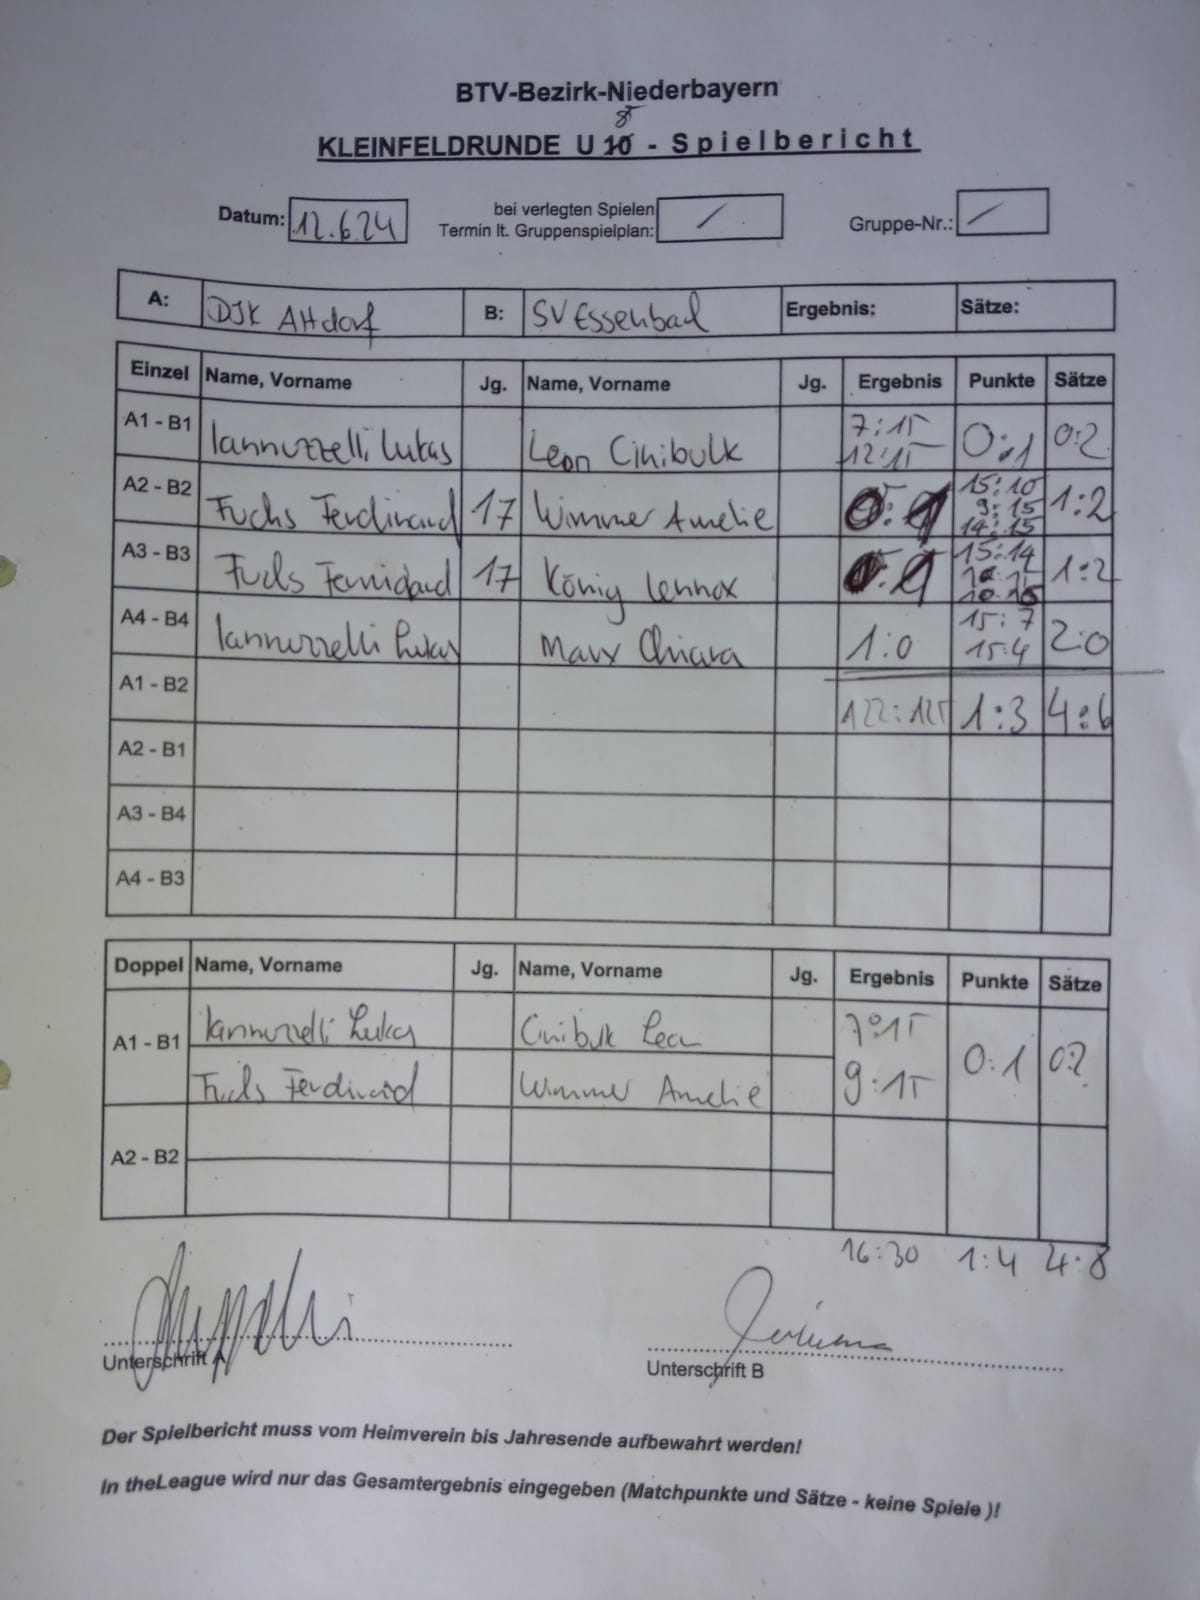 BTV-Bezirk-Niederbayern
8
KLEINFELDRUNDE U 10 - Spielbericht
Datum: 12.6.24 bei verlegten Spielen Termin lt. Gruppenspielplan: / Gruppe-Nr.: /
A: DJK Altdorf B: SV Essenbach Ergebnis: Sätze:
Einzel Name, Vorname Jg. Name, Vorname Jg. Ergebnis Punkte Sätze
A1 - B1 Iannuzzelli Lukas Leon Cinibulk 7:15 12:15 0:1 0:2
A2 - B2 Fuchs Ferdinand 17 Wimmer Amelie 0:1 15:10 9:15 14:15 1:2
A3 - B3 Fuchs 17 König Lennox 0:1 15:14 10:15 1:2
A4 - B4 Iannuzzelli Lukas Marx Chiara 1:0 15:7 15:4 2:0
A1 - B2 122:125 1:3 4:6
A2 - B1
A3 - B4
A4 - B3
Doppel Name, Vorname Jg. Name, Vorname Jg. Ergebnis Punkte Sätze
A1 - B1 Iannuzzelli Lukas Cinibulk Leon 7:15 0:1 0:2
Fuchs Ferdinand Wimmer Amelie 9:15
A2 - B2
16:30 1:4 4:8
Unterschrift A Unterschrift B
Der Spielbericht muss vom Heimverein bis Jahresende aufbewahrt werden!
In theLeague wird nur das Gesamtergebnis eingegeben (Matchpunkte und Sätze - keine Spiele )!